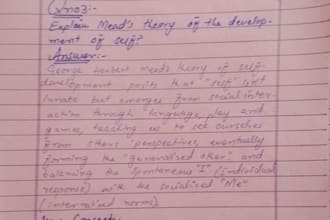 Q.No3:-
Explain Mead's theory of the develop-
ment of self?
Answer:-
George Herbert Mead's theory of self-
development posits that "self" isn't
innate but emerges from social inter-
action through language, play and
games, teaching us to see ourselves
from others' perspectives, eventually
forming the "generalised other" and
balancing the spontaneous "I" (individual
response) with the socialised "Me"
(internalised norms)